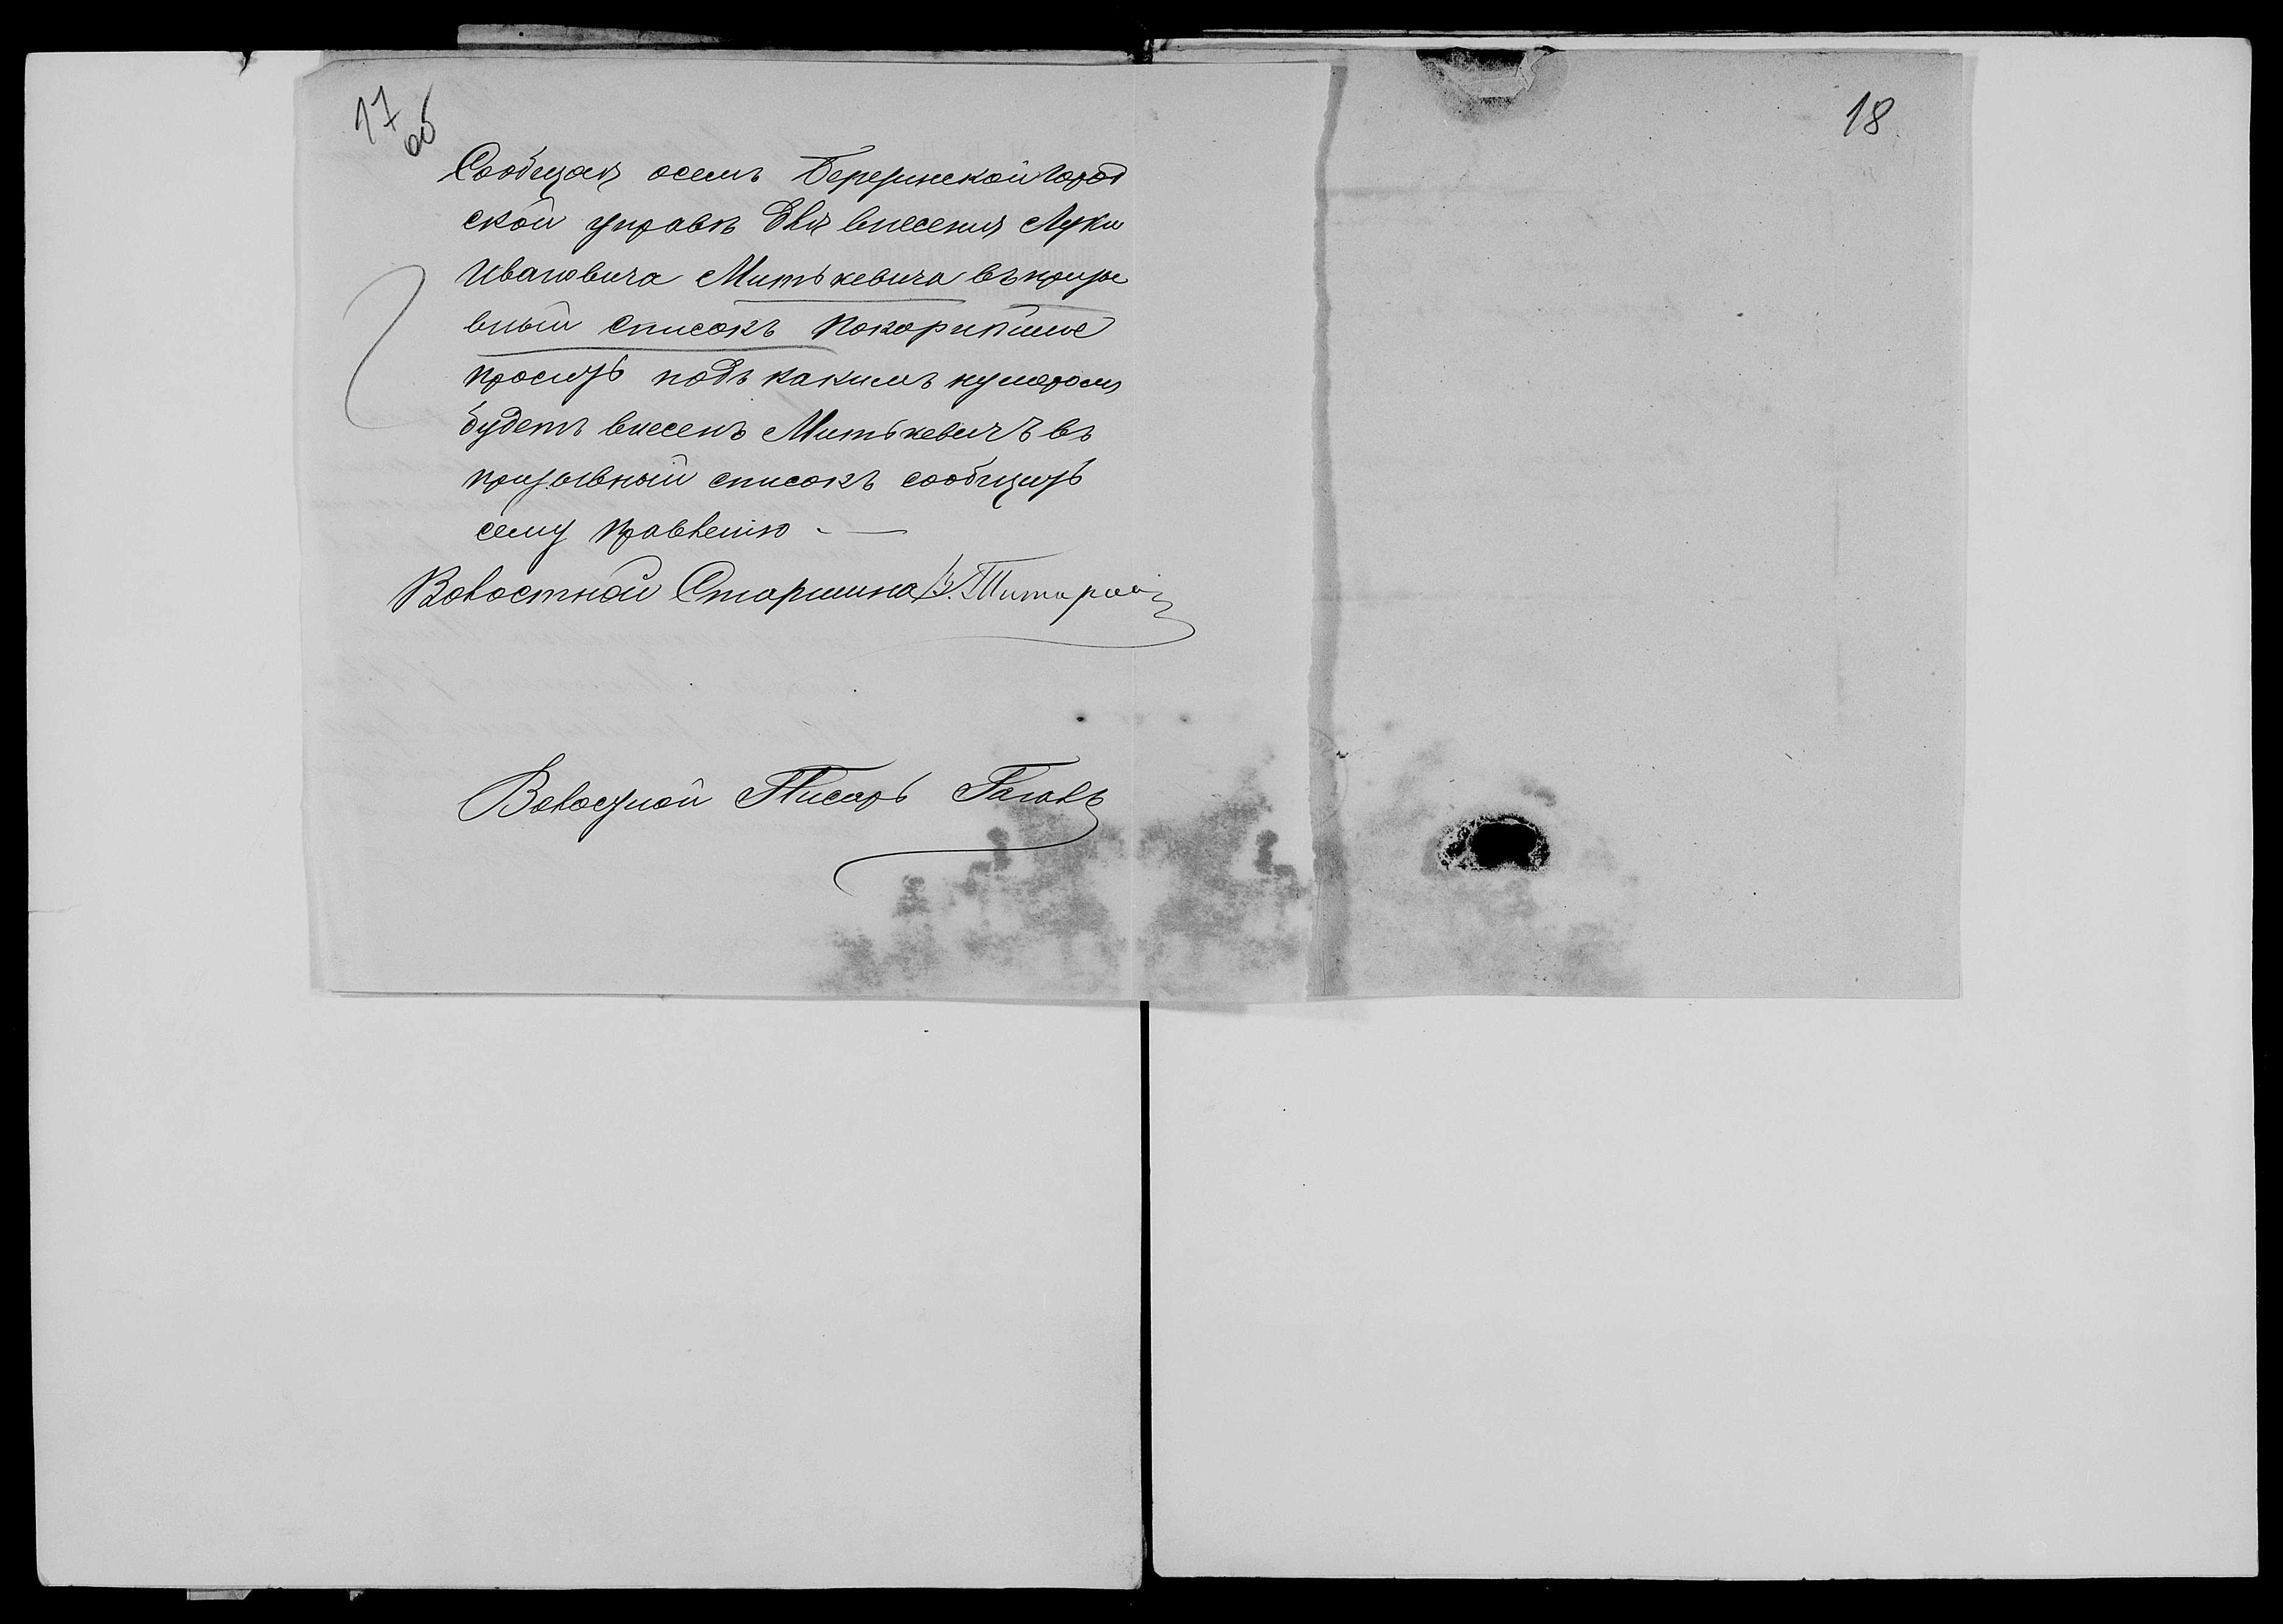 17
об
18
Сообщая осемъ Березинской город
ской управѣ для внесенія Луки
Ивановича Митькевича въ призы
вный списокъ покорнѣйше
проситъ подъ какимъ нумеромъ
будетъ внесенъ Митькевичъ въ
призывный списокъ сообщить
сему Правленію
Волостной Старшина
Волостной Писарь